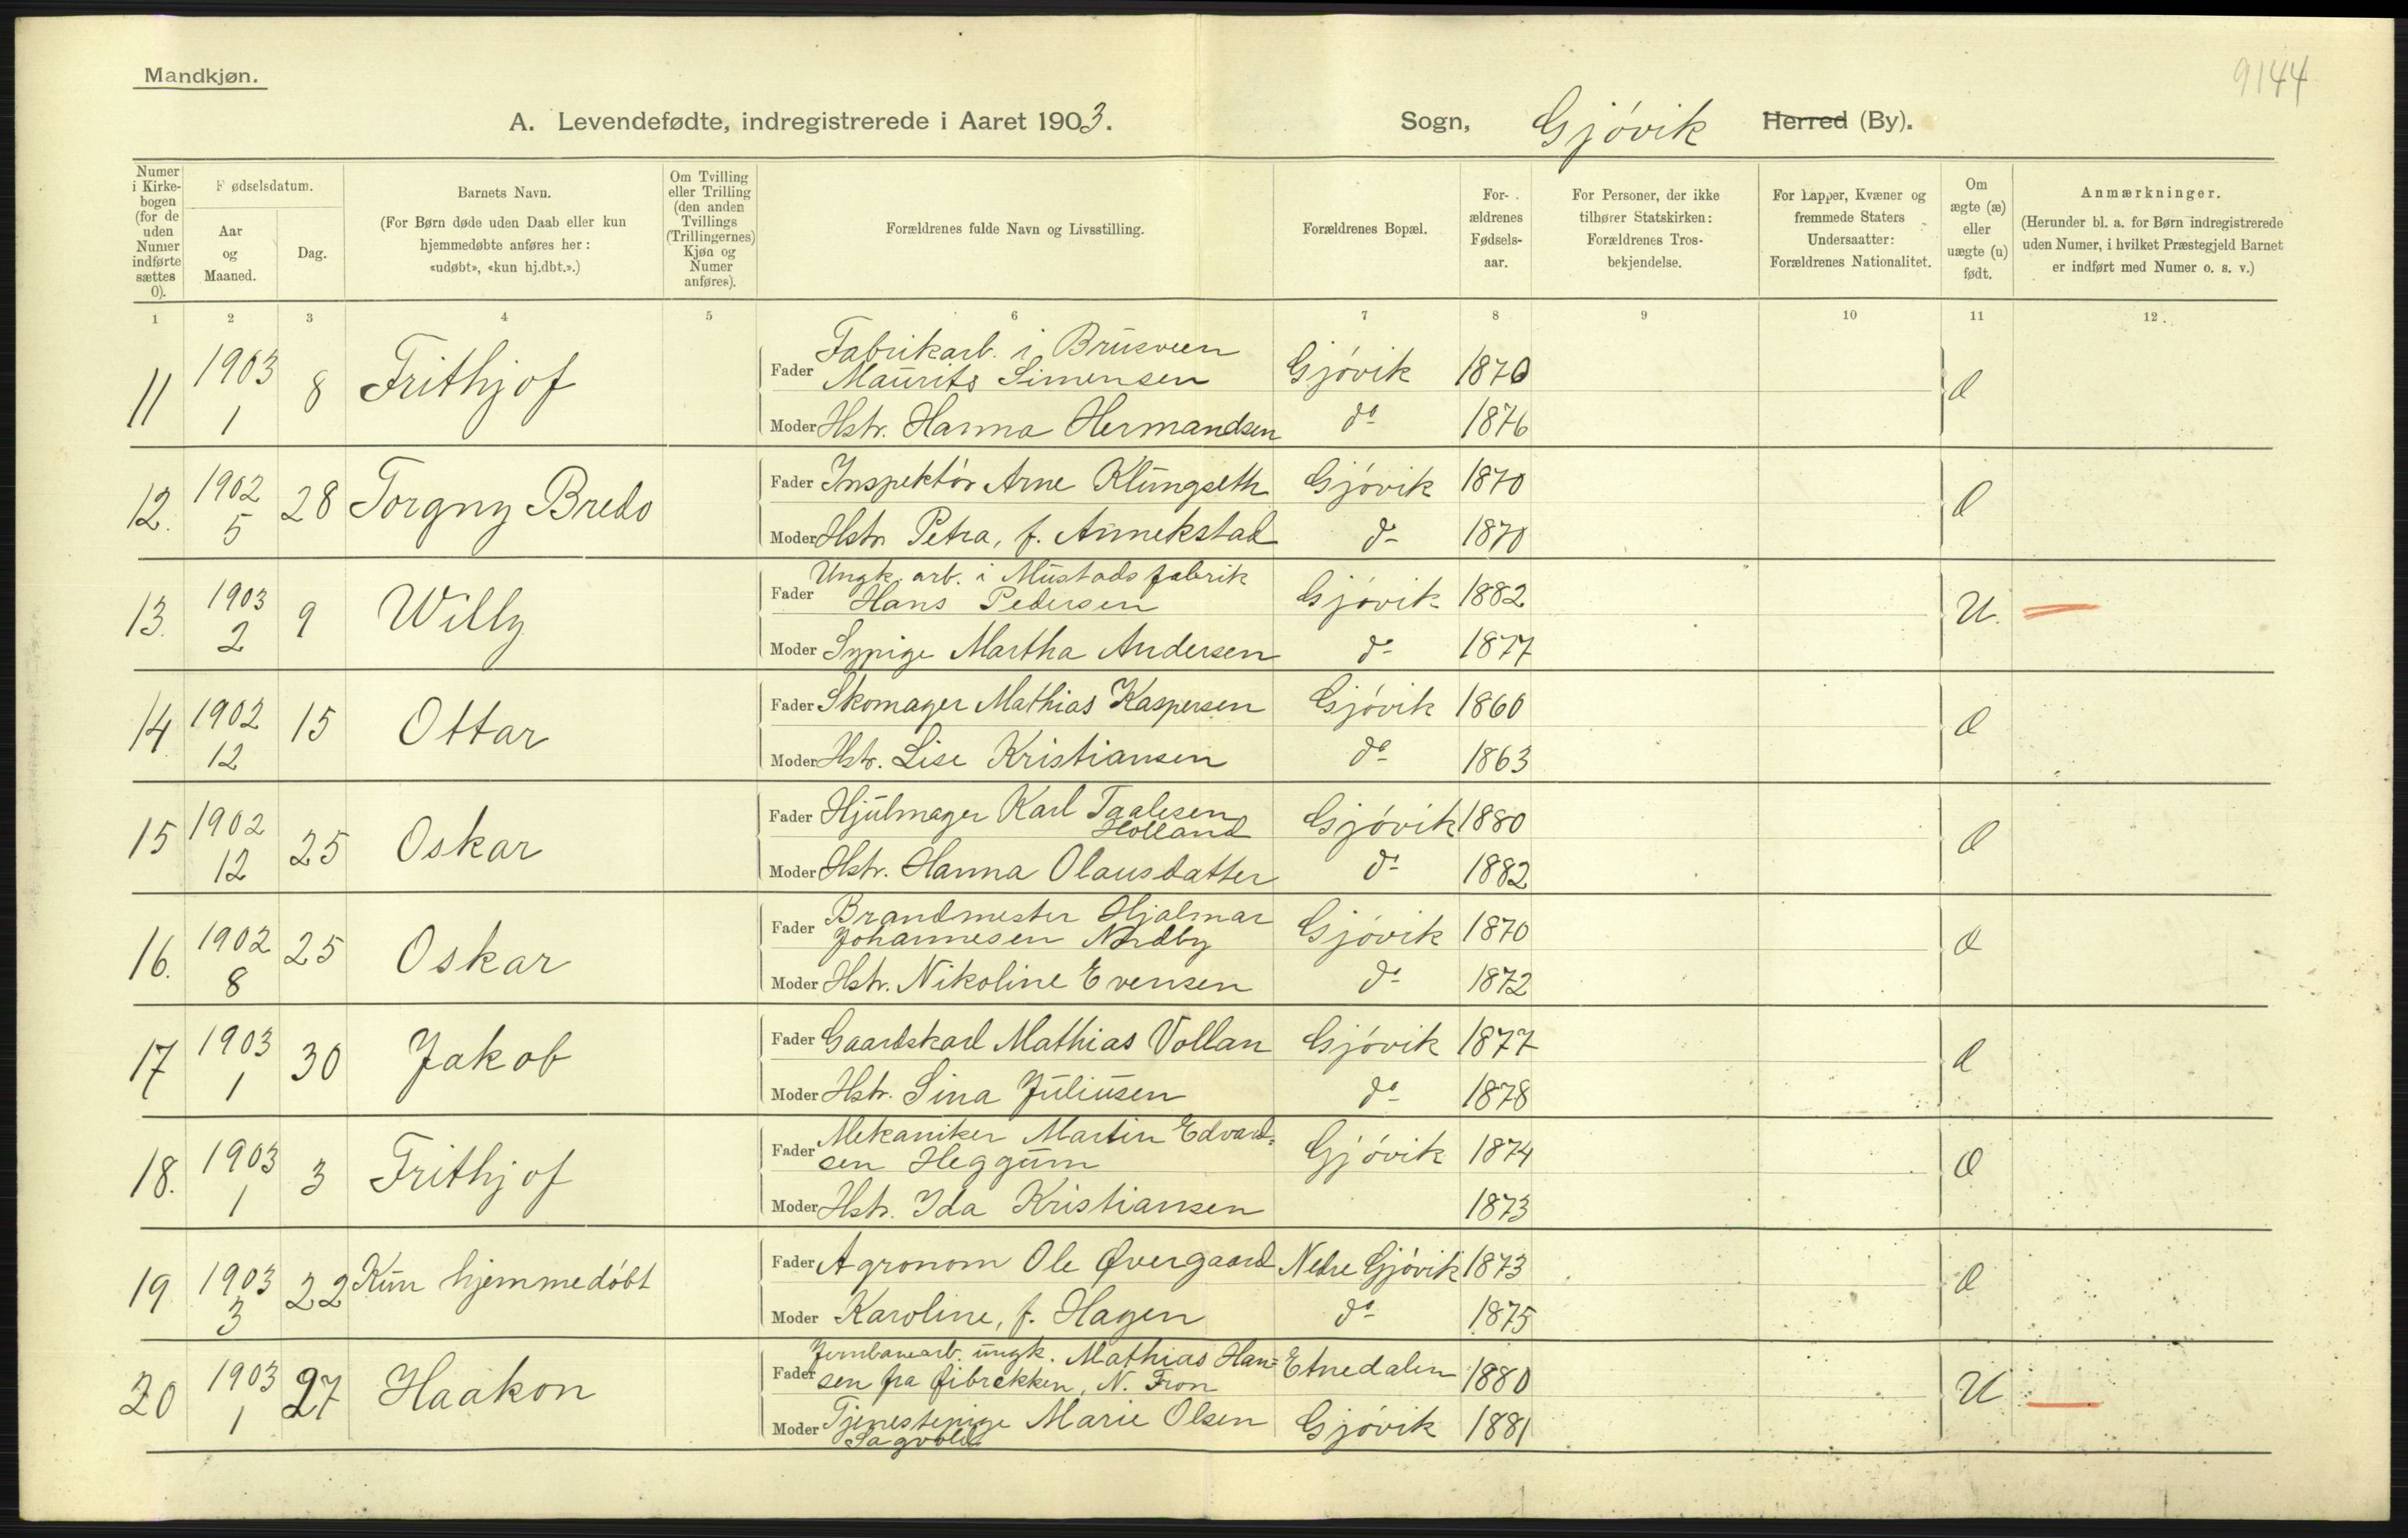 Mandkjøn.
9144
A. Levendefødte, indregistrerede i Aaret 1903.
Sogn, Gjøvik Herred (By).
Numer i Kirkebogen (for de uden Numer indførte sættes 0).
Fødselsdatum.
Aar og Maaned.
Dag.
Barnets Navn.
(For Børn døde uden Daab eller kun
hjemmedøbte anføres her:
«udøbt», «kun hj.dbt.».)
Om Tvilling eller Trilling (den anden Tvillings (Trillingernes) Kjøn og Numer anføres).
Forældrenes fulde Navn og Livsstilling.
Forældrenes Bopæl.
Forældrenes Fødselsaar.
For Personer, der ikke tilhører Statskirken: Forældrenes Trosbekjendelse.
For Lapper, Kvæner og fremmede Staters Undersaatter: Forældrenes Nationalitet.
Om ægte (æ) eller uægte (u) født.
Anmærkninger.
(Herunder bl. a. for Børn indregistrerede
uden Numer, i hvilket Præstegjeld Barnet
er indført med Numer o. s. v.)
1 2 3 4 5 6 7 8 9 10 11 12.
11 1903 1 8 Frithjof
Fader Fabrikarb. i Brusveen
Maurits Simensen Gjøvik 1870 Æ
Moder Hstr. Hanna Hermandsen do 1876
12. 1902 5 28 Torgny Bredo
Fader Inspektør Arne Klungseth Gjøvik 1870 Æ
Moder Hstr. Petra, f. Annekstad do 1870
13. 1903 2 9 Willy
Fader Ungk. arb. i Mustads fabrik
Hans Pedersen Gjøvik 1882 U.
Moder Sypige Martha Andersen do 1877
14 1902 12 15 Ottar
Fader Skomager Mathias Kaspersen Gjøvik 1860 Æ
Moder Hstr. Lise Kristiansen do 1863
15 1902 12 25 Oskar
Fader Hjulmager Karl Taalesen
Holland Gjøvik 1880 Æ
Moder Hstr. Hanna Olausdatter do 1882
16. 1902 8 25 Oskar
Fader Brandmester Hjalmar
Johannesen Nordby Gjøvik 1870 Æ
Moder Hstr. Nikoline Evensen do 1872
17 1903 1 30 Jakob
Fader Gaardskarl Mathias Vollan Gjøvik 1877 Æ
Moder Hstr. Sina Juliusen do 1878
18. 1903 1 3 Frithjof
Fader Mekaniker Martin Edvard=
sen Heggum Gjøvik 1874 Æ
Moder Hstr. Ida Kristiansen 1873
19 1903 3 22 Kun hjemmedøbt
Fader Agronom Ole Øvergaard Nedre Gjøvik 1873 Æ
Moder Karoline, f. Hagen do 1875
20 1903 1 27 Haakon
Fader Jernbanearb. ungk. Mathias Han=
sen fra N. Fron Etnedalen 1880 U
Moder Tjenestepige Marie Olsen Gjøvik 1881